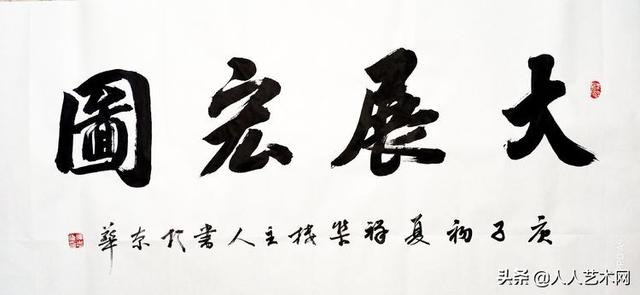 大展宏圖
庚子初夏祥集機主人書於京華
头条@人人艺术网